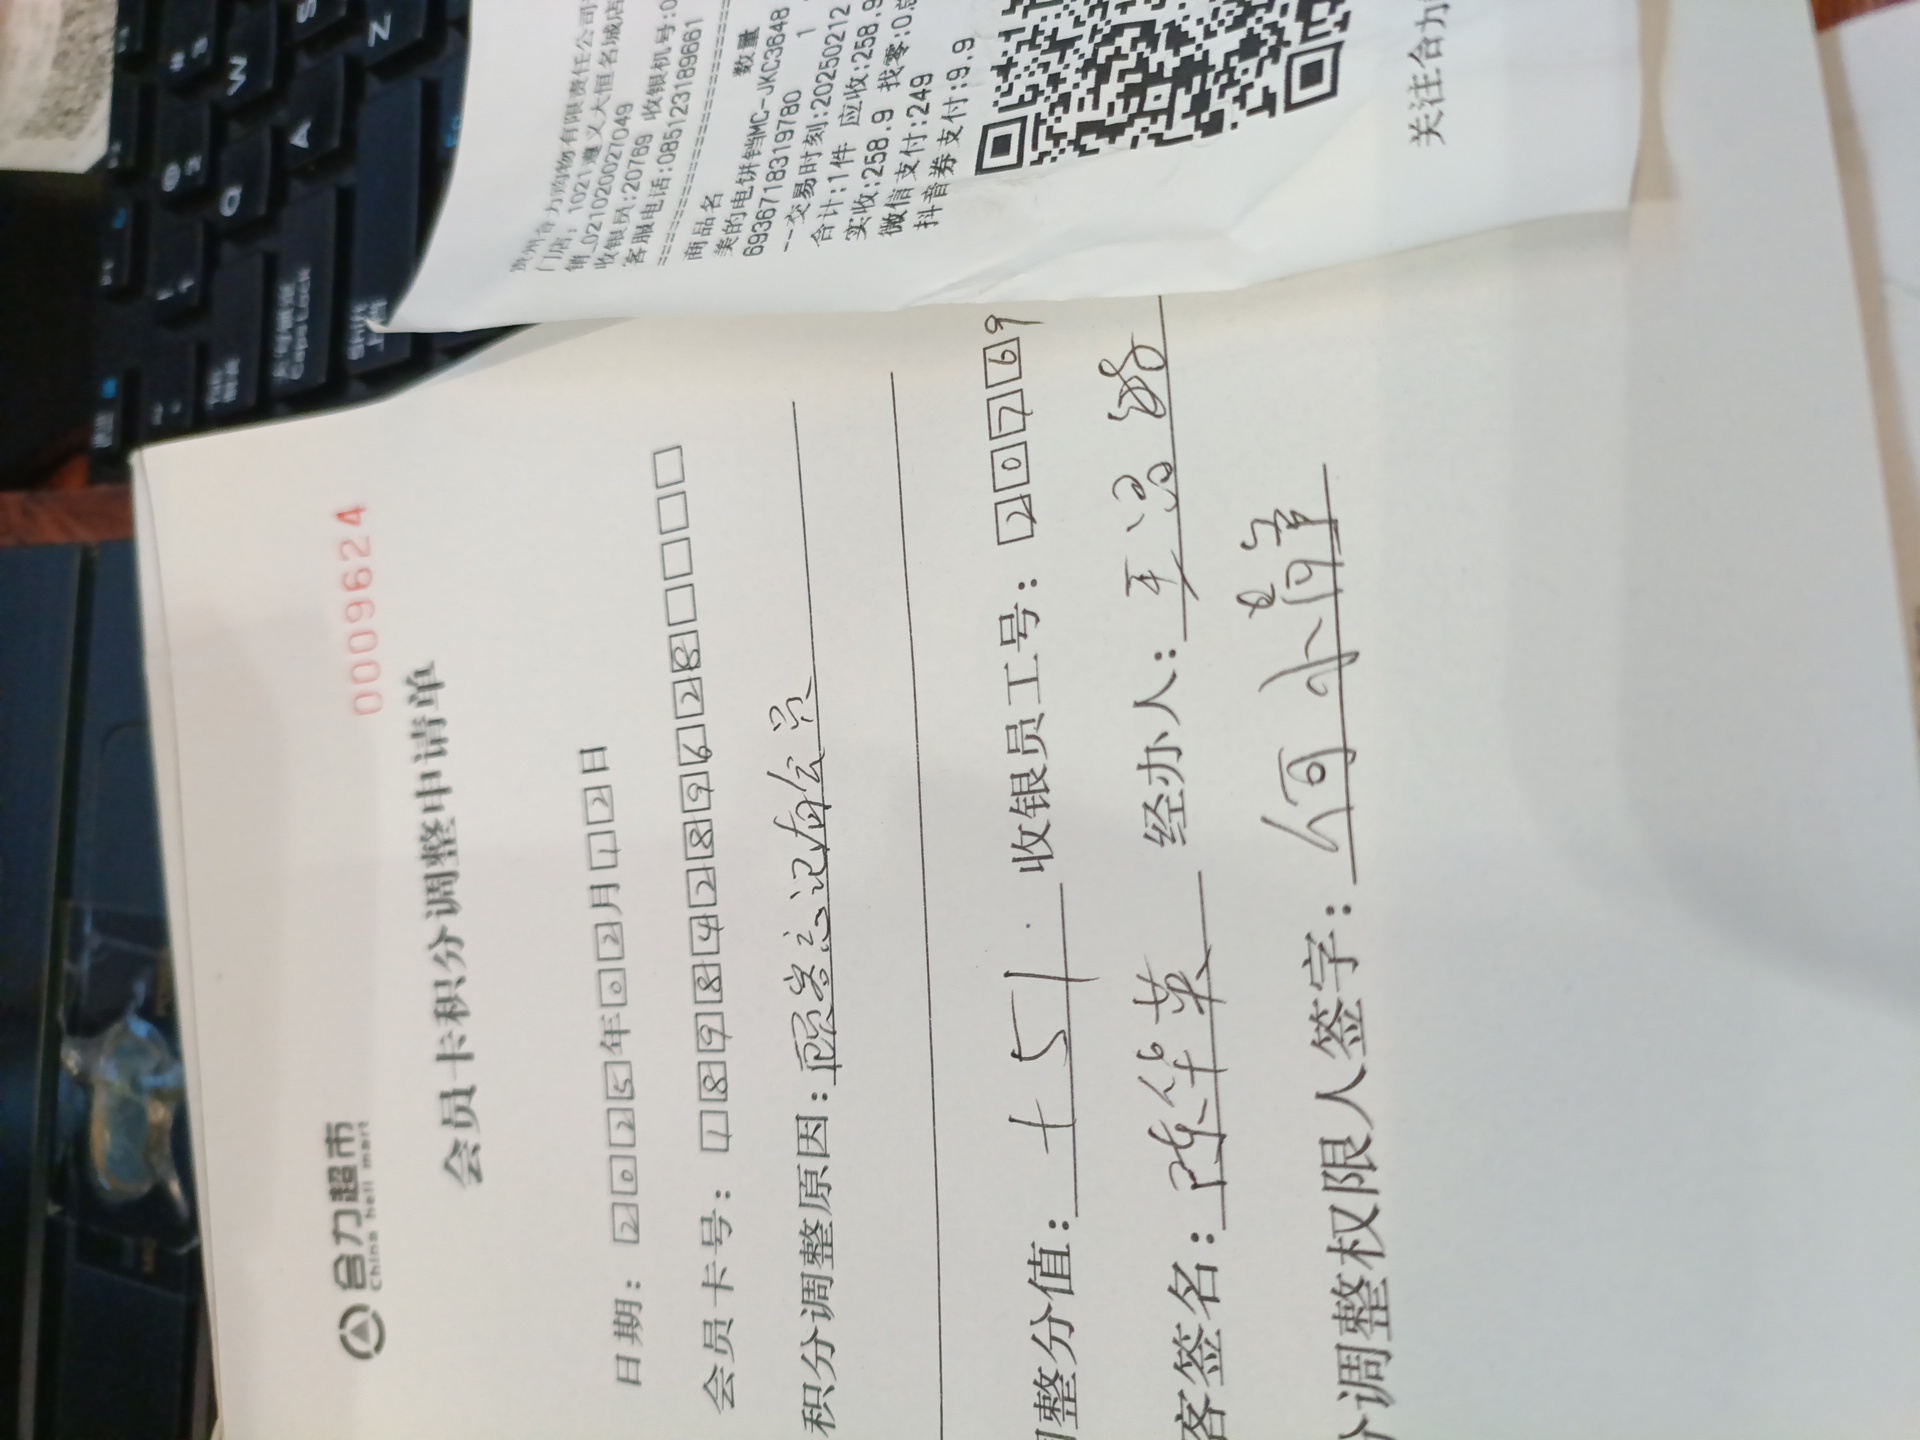 合力超市
China heli mart
0009624
会员卡积分调整申请单
日期：2025年02月12日
会员卡号：18984289628
积分调整原因：顾客忘记有会员
调整分值：+51 收银员工号：20769
客签名：陈华英 经办人：
分调整权限人签字：何小
贵州合力购物有限责任公司
门店：1021遵义大恒名城店
销_021020027049
收银员:20769 收银机号:0
客服电话:085123189661
商品名 数量
美的电饼铛MC-JKC3648
6936718319780 1
--交易时刻:20250212
合计:1件 应收:258.9
实收:258.9 找零:0
微信支付:249
抖音券支付:9.9
关注合力
W
A
Q
Z
S
大写锁定
Caps Lock
Shift
上档